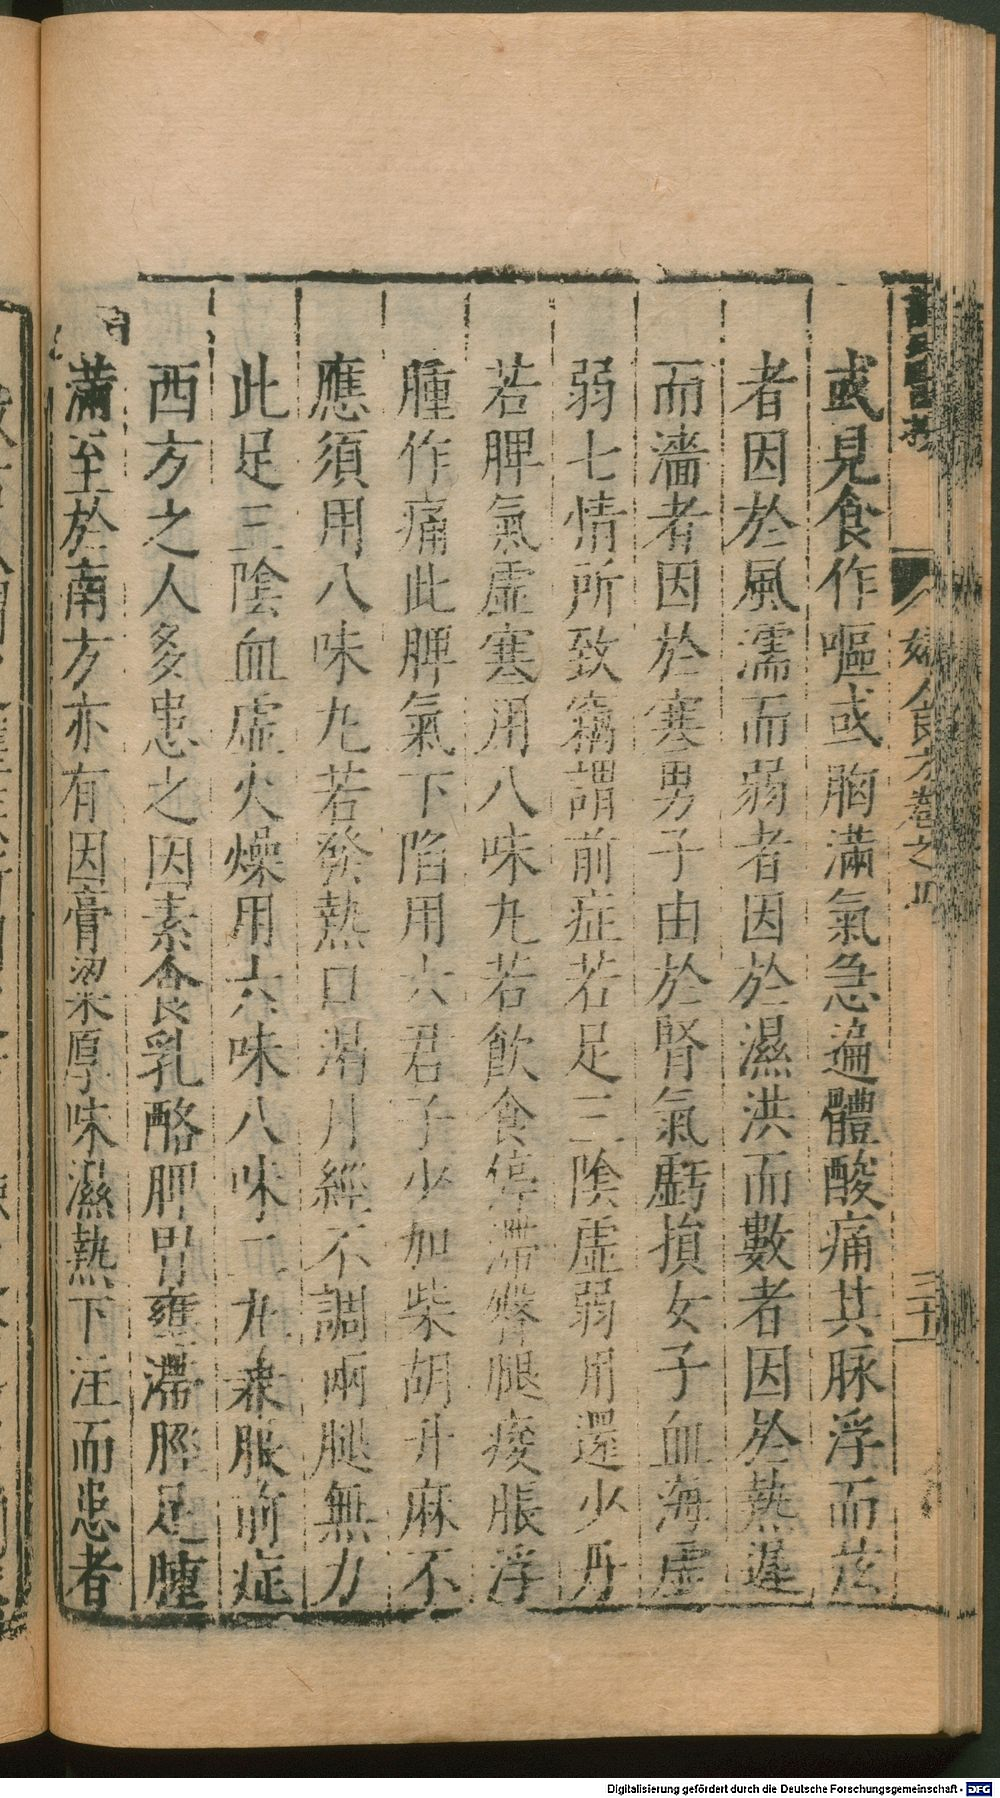 婦人良方卷之四
三十
或見食作嘔或胸滿氣急遍體酸痛其脉浮而弦
者因於風濡而弱者因於濕洪而數者因於熱遲
而濇者因於寒男子由於腎氣虧損女子血海虛
弱七情所致竊謂前症若足三陰虛弱用還少丹
若脾氣虛寒用八味丸若飲食停滯臀腿痠脹浮
腫作痛此脾氣下陷用六君子少加柴胡升麻不
應須用八味丸若發熱口渴月經不調兩腿無力
此足三陰血虛火燥用六味八味二丸兼服前症
西方之人多患之因素食乳酪脾胃壅滯脛足腫
滿至於南方亦有因膏粱厚味濕熱下注而患者
Digitalisierung gefördert durch die Deutsche Forschungsgemeinschaft - DFG